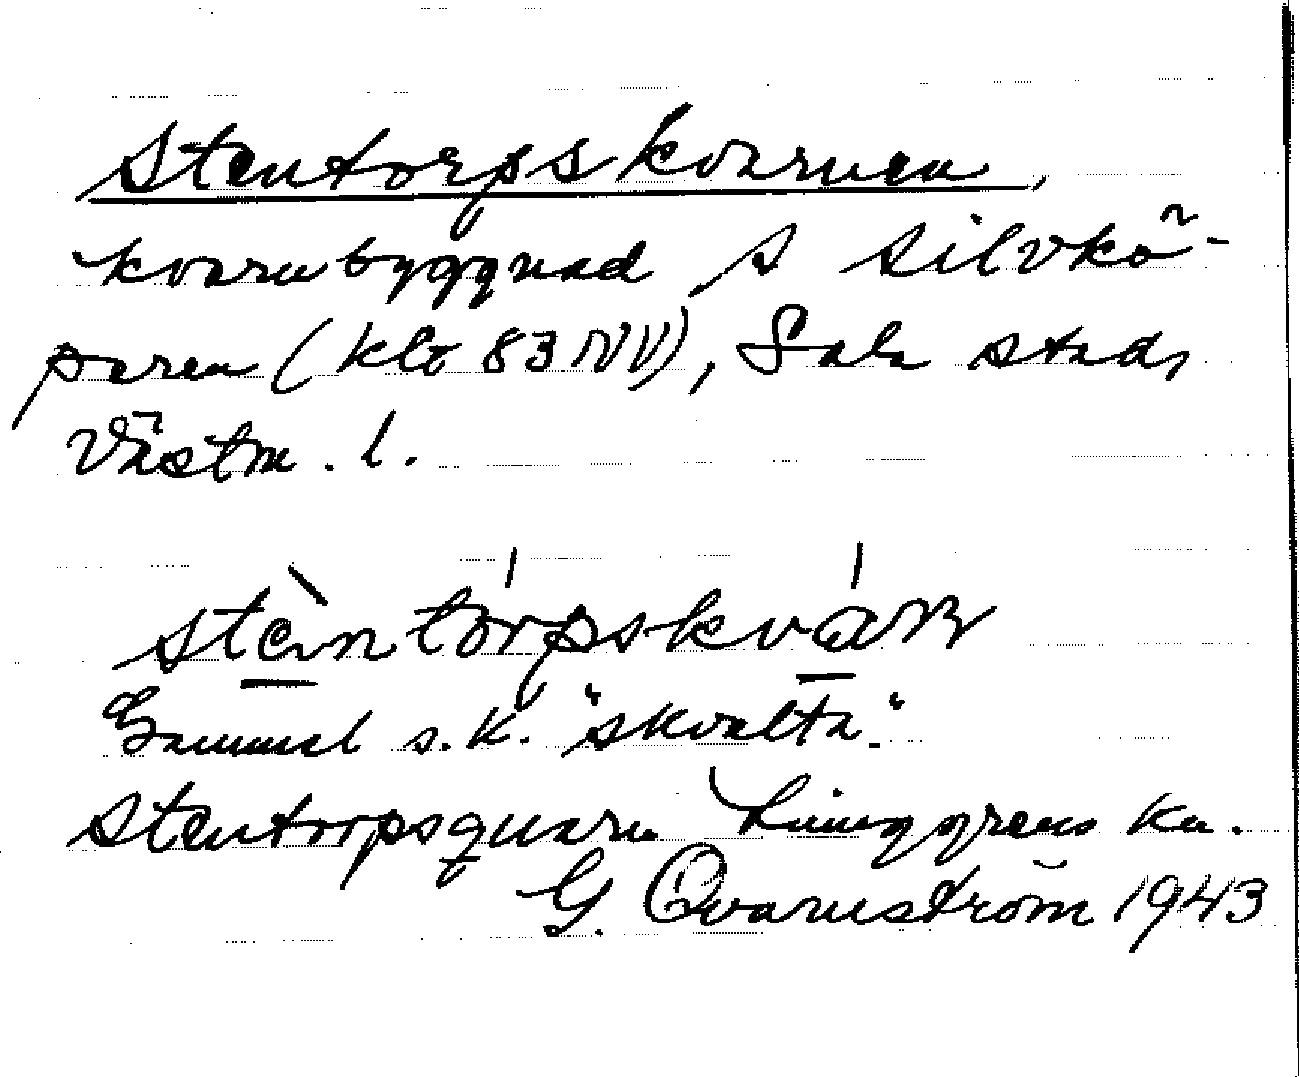 Stentorpskvarnen,
kvarnbyggnad S Silvkö-
paren (kbl 83 NV), Sala stad,
Västm. l.
stèntórpskván
Gammal s.k. "skvalta".
Stentorpsquarn Ljunggrens ka.
G. Qvarnström 1943